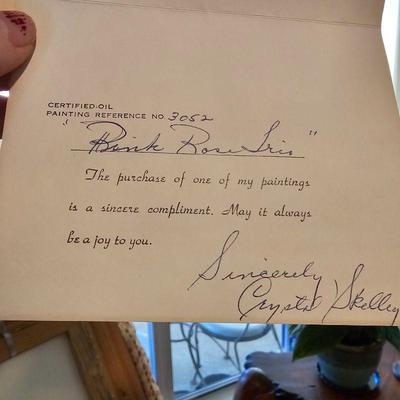 CERTIFIED-OIL
PAINTING REFERENCE NO. 3052
"Pink Rose Iris"
The purchase of one of my paintings
is a sincere compliment. May it always
be a joy to you.
Sincerely
Crystal Skelley